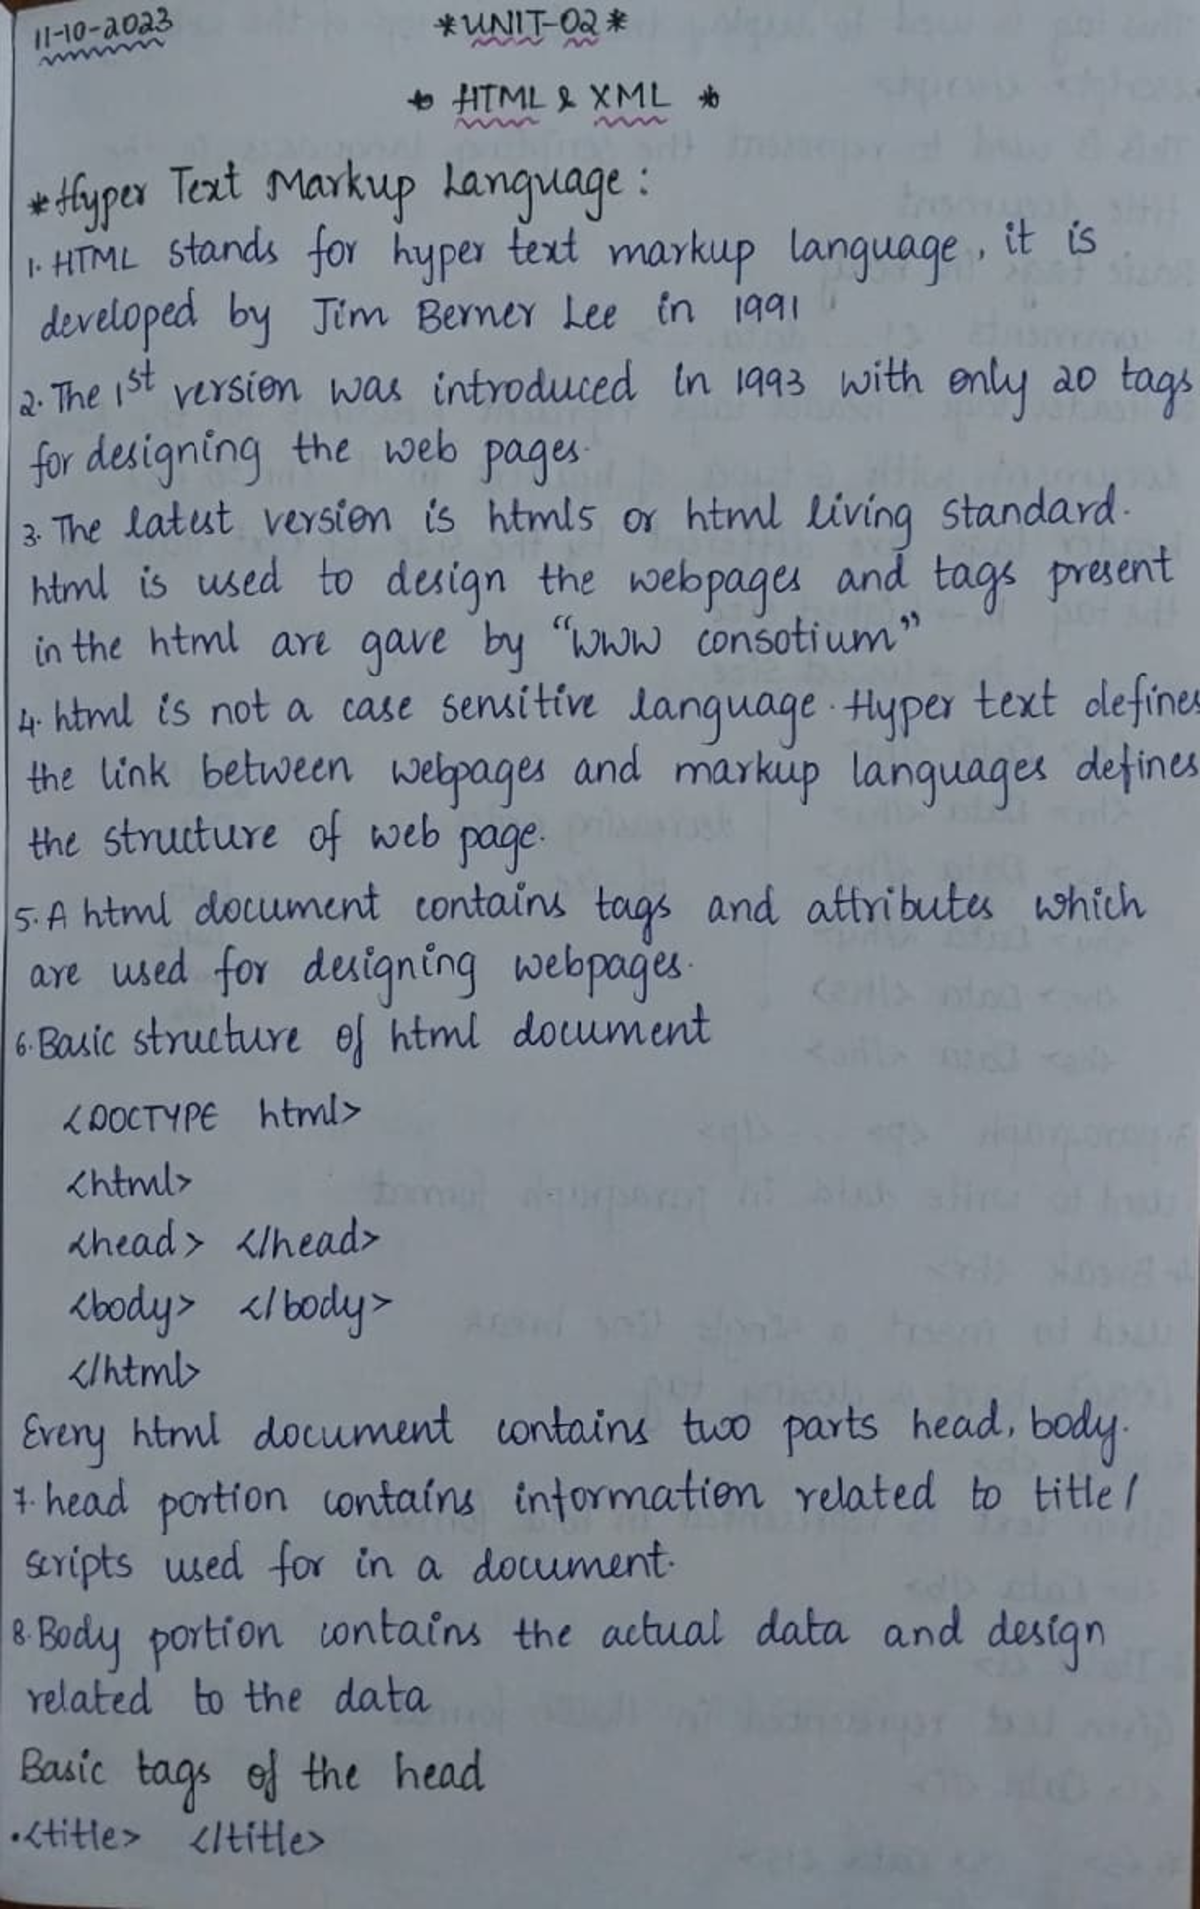 11-10-2023
*UNIT-02*
* HTML & XML *
*Hyper Text Markup Language:
1. HTML stands for hyper text markup language, it is
developed by Jim Berner Lee in 1991
2. The 1st version was introduced in 1993 with only 20 tags
for designing the web pages.
3. The latest version is html5 or html living standard.
html is used to design the webpages and tags present
in the html are gave by "WWW consotium"
4. html is not a case sensitive language. Hyper text defines
the link between webpages and markup languages defines
the structure of web page.
5. A html document contains tags and attributes which
are used for designing webpages.
6. Basic structure of html document
<DOCTYPE html>
<html>
<head> </head>
<body> </body>
</html>
Every html document contains two parts head, body.
7. head portion contains information related to title/
scripts used for in a document.
8. Body portion contains the actual data and design
related to the data
Basic tags of the head
•<title> </title>